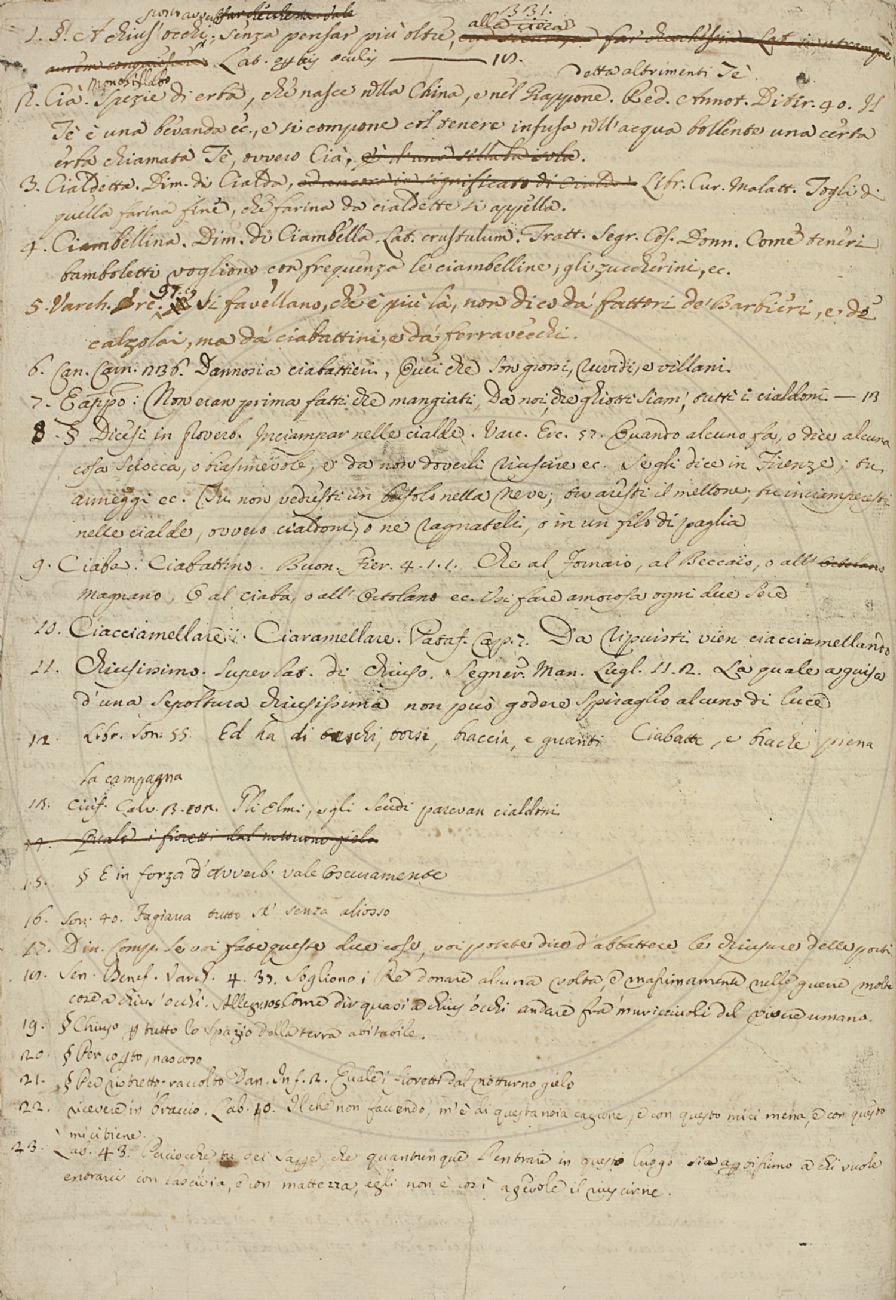 1. §. A chius' occhi, senza pensar più oltre, alla cieca
Lab. 18.
Monosillabo Detta altrimenti Tè
2. Cià. Spezie di erba, che nasce nella China, e nel Giappone. Red. Annot. Ditir. 40. Il
Tè è una bevanda ec., e si compone col tenere infusa nell'acqua bollente una certa
erba chiamata Tè, ovvero Cià,
3. Cialdetta. Dim. di Cialda, Libr. Cur. Malatt. Togli di
quella farina fine, che farina da cialdette si appella.
4. Ciambellina. Dim. di Ciambella. Lat. crustulum. Tratt. Segr. Cos. Donn. Come teneri
bamboletti vogliono con frequenza le ciambelline, gli zuccherini, ec.
5. Varch. Erc. 97. Si favellano, che è più là, non dico da' fattori de' Barbieri, e de'
calzolai, ma da' ciabattini, e da' ferravecchi.
6. Can. Carn. 136. Dannosia ciabattieri, Quei che son grossi, ruvidi, e villani.
7. E appo: Non eran prima fatti, che mangiati, Da noi, che ghiotti siam, tutti i cialdoni — 13
8. § Dicesi in Proverb. Inciampar nelle cialde. Varc. Erc. 57. Quando alcuno fa, o dice alcuna
cosa sciocca, o biasimevole, e da non doverli riuscire ec. se gli dice in Firenze; tu
armeggi ec. Tu non vedresti un bufolo nella neve; tu aresti il mellone; tu inciamperesti
nelle cialde, ovvero cialdoni, o ne' ragnateli, o in un filo di paglia
9. Ciaba: Ciabattino. Buon. Fier. 4. 1. 1. Che al Fornaio, al Beccaio, o all' Ortolano
Magnano, O al ciaba, o all' Ortolano ec. Usi fare amorosa ogni due sere
10. Ciacciamellare. Ciaramellare. Pataff. Cap. 7. Da Ripuisti vien ciacciamellando
11. Chiusissimo. Superlat. di Chiuso. Segner. Man. Lugl. 11. 2. La quale a guisa
d'una sepoltura chiusissima non può godere spiraglio alcuno di luce
12. Libr. Son. 55. Ed ha di teschi, torsi, braccia, e guanti Ciabatte, e brache piena
la campagna
13. Ciriff. Calv. 3. 101. Gli Elmi, e gli Scudi parevan cialdoni
14. Quale i fioretti dal notturno gielo
15. § E in forza d'Avverb. vale Oscuramente
16. Son. 40. Fagiana tutto sa' senza aliosso
17. Din. Comp. Se voi fate queste due cose, voi potete dire d'abbattere le chiusure delle porti
18. Sen. Benef. Varch. 4. 39. Sogliono i Re donare alcuna volta, e massimamente nelle guerre, molte
cose a chius' occhi. Alleg. 108. Come dir quasi a chius' occhi andare fra' muricciuoli del vivere umano.
19. § Chiuso p tutto lo spazio della terra abitabile.
20. § Per coperto, nascoso
21. § Per ristretto, raccolto Dan. Inf. 2. Quale i fioretti dal notturno gielo
22. ricevere in braccio. Lab. 10. Il che non facendo, m'è di questa noia cagione, e con questo mici mena, e con questo
mici tiene.
23. Lab. 43. Perciocchè tu dei sapere, che quantunque l'entrare in questo luogo sia apertissimo a chi vuole
entrarci con lascivia, e con mattezza, egli non è così agevole il riuscirne.